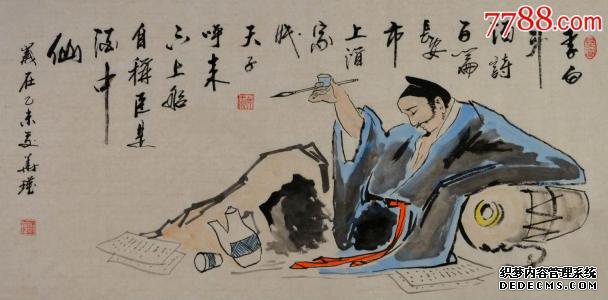 7788.com
李白
斗
酒詩
百篇
長安
市
上酒
家
眠
天子
呼来
不上船
自稱臣是
酒中
仙
歲在乙未
织梦内容管理系统
DEDECMS.COM